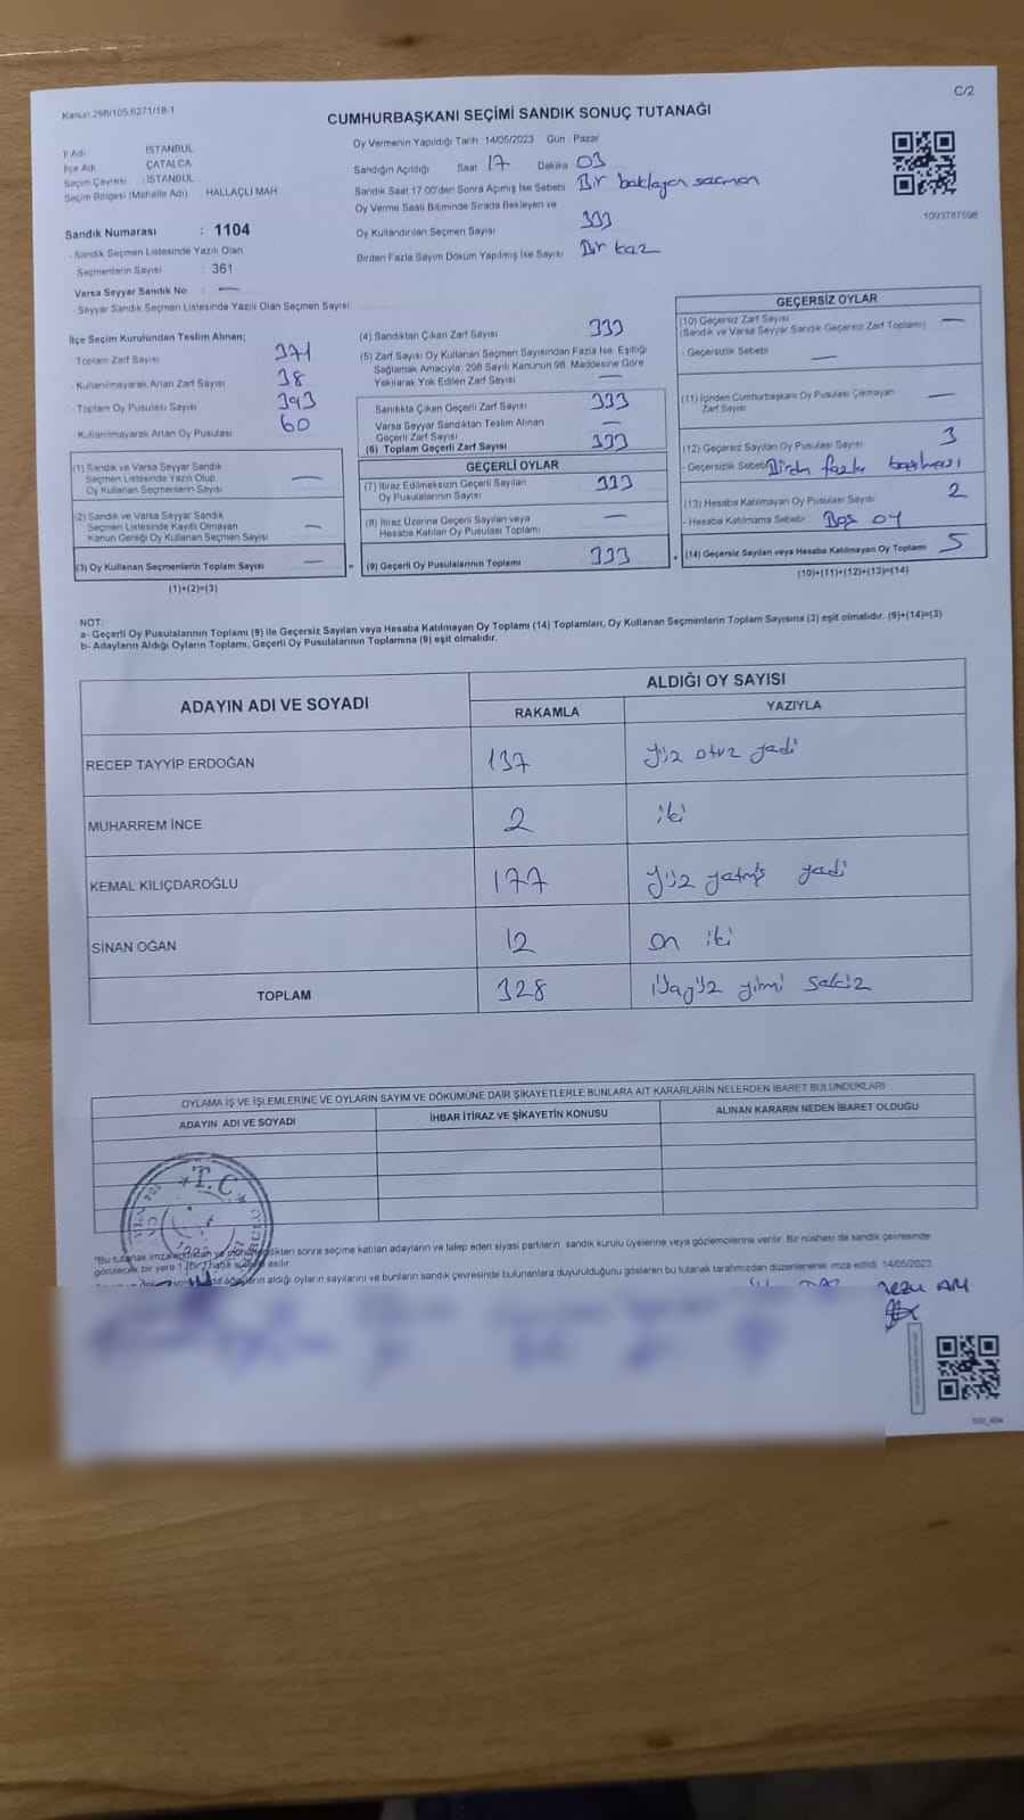 Kanun:298/105,6271/18-1
C/2
CUMHURBAŞKANI SEÇİMİ SANDIK SONUÇ TUTANAĞI
İl Adı : İSTANBUL
İlçe Adı : ÇATALCA
Seçim Çevresi : İSTANBUL
Seçim Bölgesi (Mahalle Adı) HALLAÇLI MAH
Sandık Numarası : 1104
- Sandık Seçmen Listesinde Yazılı Olan
Seçmenlerin Sayısı : 361
Varsa Seyyar Sandık No : —
- Seyyar Sandık Seçmen Listesinde Yazılı Olan Seçmen Sayısı:
Oy Vermenin Yapıldığı Tarih :14/05/2023 Gün : Pazar
Sandığın Açıldığı Saat 17 Dakika 03
Sandık Saat 17.00'den Sonra Açılmış İse Sebebi Bir bekleyen seçmen
Oy Verme Saati Bitiminde Sırada Bekleyen ve
Oy Kullandırılan Seçmen Sayısı 333
Birden Fazla Sayım Döküm Yapılmış İse Sayısı Bir kez
1093787598
İlçe Seçim Kurulundan Teslim Alınan;
Toplam Zarf Sayısı 371
- Kullanılmayarak Artan Zarf Sayısı 38
- Toplam Oy Pusulası Sayısı 393
- Kullanılmayarak Artan Oy Pusulası 60
(1) Sandık ve Varsa Seyyar Sandık
Seçmen Listesinde Yazılı Olup
Oy Kullanan Seçmenlerin Sayısı —
(2) Sandık ve Varsa Seyyar Sandık
Seçmen Listesinde Kayıtlı Olmayan
Kanun Gereği Oy Kullanan Seçmen Sayısı —
(3) Oy Kullanan Seçmenlerin Toplam Sayısı —
(1)+(2)=(3)
(4) Sandıktan Çıkan Zarf Sayısı 333
(5) Zarf Sayısı Oy Kullanan Seçmen Sayısından Fazla İse, Eşitliği
Sağlamak Amacıyla, 298 Sayılı Kanunun 98. Maddesine Göre
Yakılarak Yok Edilen Zarf Sayısı —
Sandıkta Çıkan Geçerli Zarf Sayısı 333
Varsa Seyyar Sandıktan Teslim Alınan
Geçerli Zarf Sayısı —
(6) Toplam Geçerli Zarf Sayısı 333
GEÇERLİ OYLAR
(7) İtiraz Edilmeksizin Geçerli Sayılan
Oy Pusulalarının Sayısı 333
(8) İtiraz Üzerine Geçerli Sayılan veya
Hesaba Katılan Oy Pusulası Toplamı —
(9) Geçerli Oy Pusulalarının Toplamı 333
GEÇERSİZ OYLAR
(10) Geçersiz Zarf Sayısı —
(Sandık ve Varsa Seyyar Sandık Geçersiz Zarf Toplamı)
- Geçersizlik Sebebi —
(11) İçinden Cumhurbaşkanı Oy Pusulası Çıkmayan
Zarf Sayısı —
(12) Geçersiz Sayılan Oy Pusulası Sayısı 3
- Geçersizlik Sebebi Birden fazla basılması
(13) Hesaba Katılmayan Oy Pusulası Sayısı 2
- Hesaba Katılmama Sebebi Boş oy
(14) Geçersiz Sayılan veya Hesaba Katılmayan Oy Toplamı 5
(10)+(11)+(12)+(13)=(14)
NOT:
a- Geçerli Oy Pusulalarının Toplamı (9) ile Geçersiz Sayılan veya Hesaba Katılmayan Oy Toplamı (14) Toplamları, Oy Kullanan Seçmenlerin Toplam Sayısına (3) eşit olmalıdır. (9)+(14)=(3)
b- Adayların Aldığı Oyların Toplamı, Geçerli Oy Pusulalarının Toplamına (9) eşit olmalıdır.
ADAYIN ADI VE SOYADI ALDIĞI OY SAYISI
RAKAMLA YAZIYLA
RECEP TAYYİP ERDOĞAN 137 yüz otuz yedi
MUHARREM İNCE 2 iki
KEMAL KILIÇDAROĞLU 177 yüz yetmiş yedi
SİNAN OĞAN 12 on iki
TOPLAM 328 üçyüz yirmi sekiz
OYLAMA İŞ VE İŞLEMLERİNE VE OYLARIN SAYIM VE DÖKÜMÜNE DAİR ŞİKAYETLERLE BUNLARA AİT KARARLARIN NELERDEN İBARET BULUNDUKLARI
ADAYIN ADI VE SOYADI İHBAR İTİRAZ VE ŞİKAYETİN KONUSU ALINAN KARARIN NEDEN İBARET OLDUĞU
T.C.
sonra seçime katılan adayların ve talep eden siyasi partilerin sandık kurulu üyelerine veya gözlemcilerine verilir. Bir nüshası da sandık çevresinde
gösterilecek bir yere 1 (Bir) asılır.
aldığı oyların sayılarını ve bunların sandık çevresinde bulunanlara duyurulduğunu gösteren bu tutanak tarafımızdan düzenlenerek imza edildi. 14/05/2023